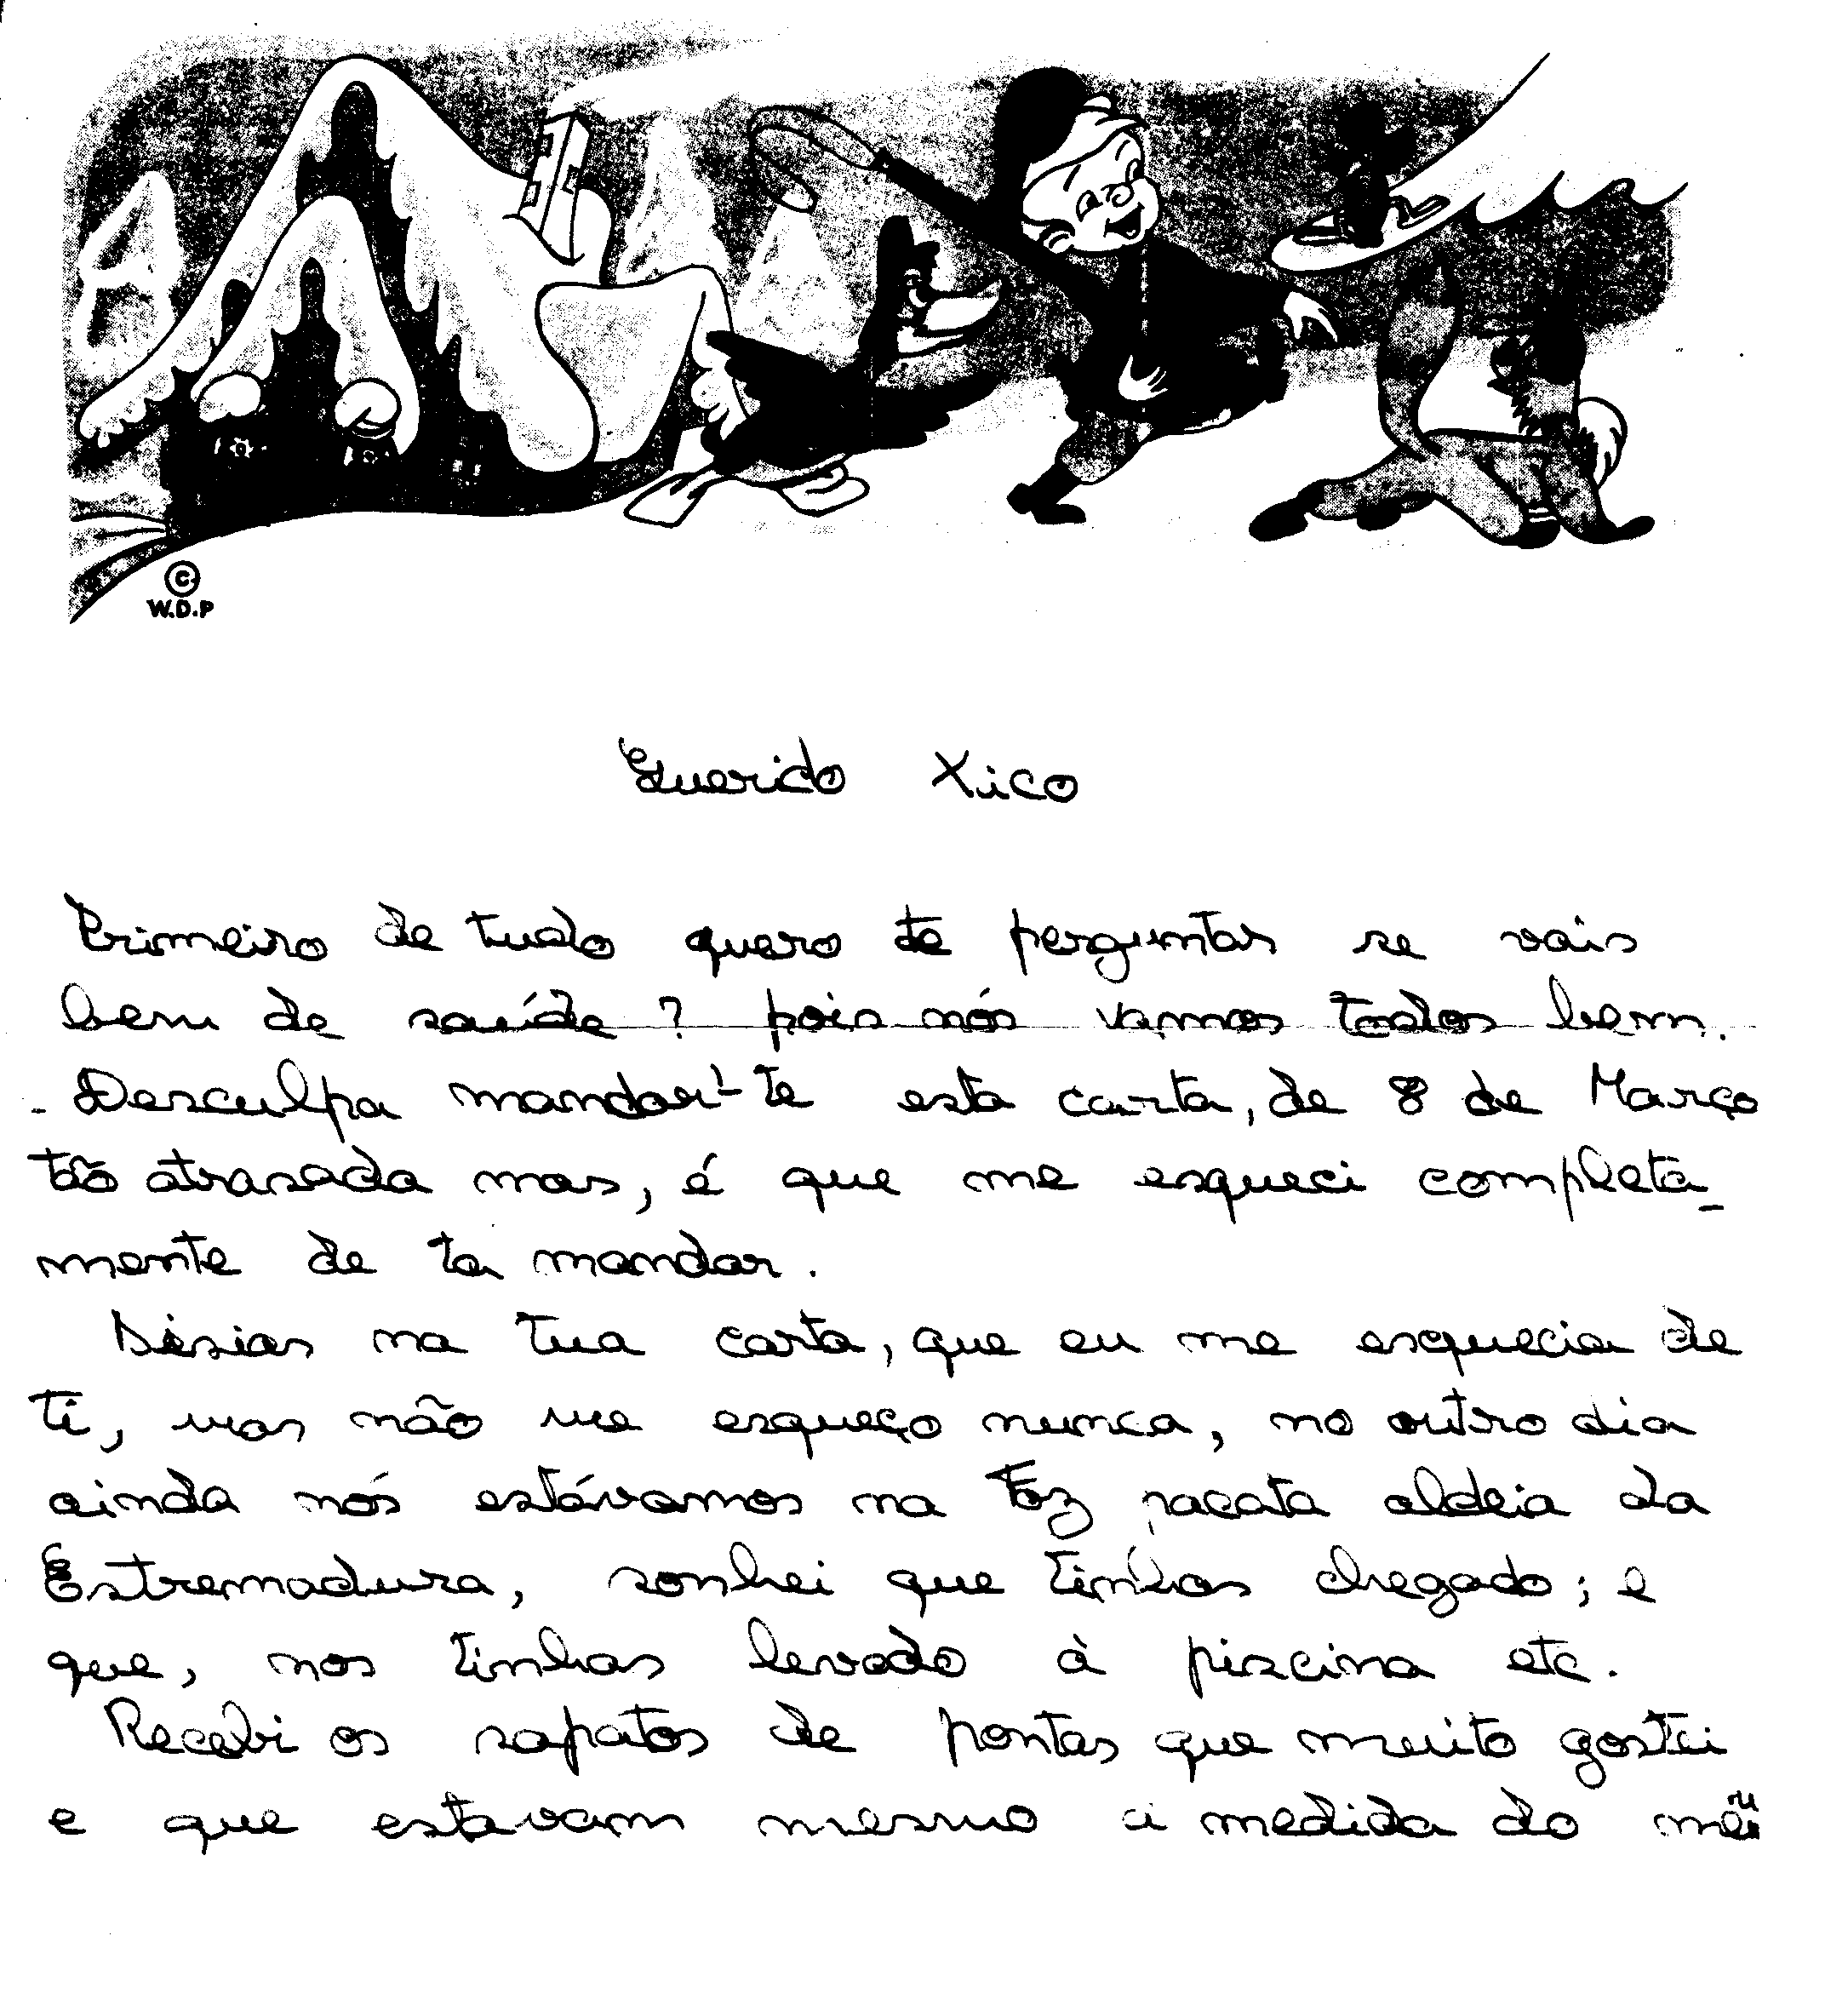 © W.D.P
Querido Xico
Primeiro de tudo quero te perguntar se vais
bem de saúde? pois nós vamos todos bem.
- Desculpa mandar-te esta carta, de 8 de Março
tão atrasada mas, é que me esqueci completa-
mente de ta mandar.
Dizias na tua carta, que eu me esquecia de
ti, mas não me esqueço nunca, no outro dia
ainda nós estávamos na Foz pacata aldeia da
Estremadura, sonhei que tinhas chegado; e
que, nos tinhas levado à piscina etc.
Recebi os sapatos de pontas que muito gostei
e que estavam mesmo à medida do meu